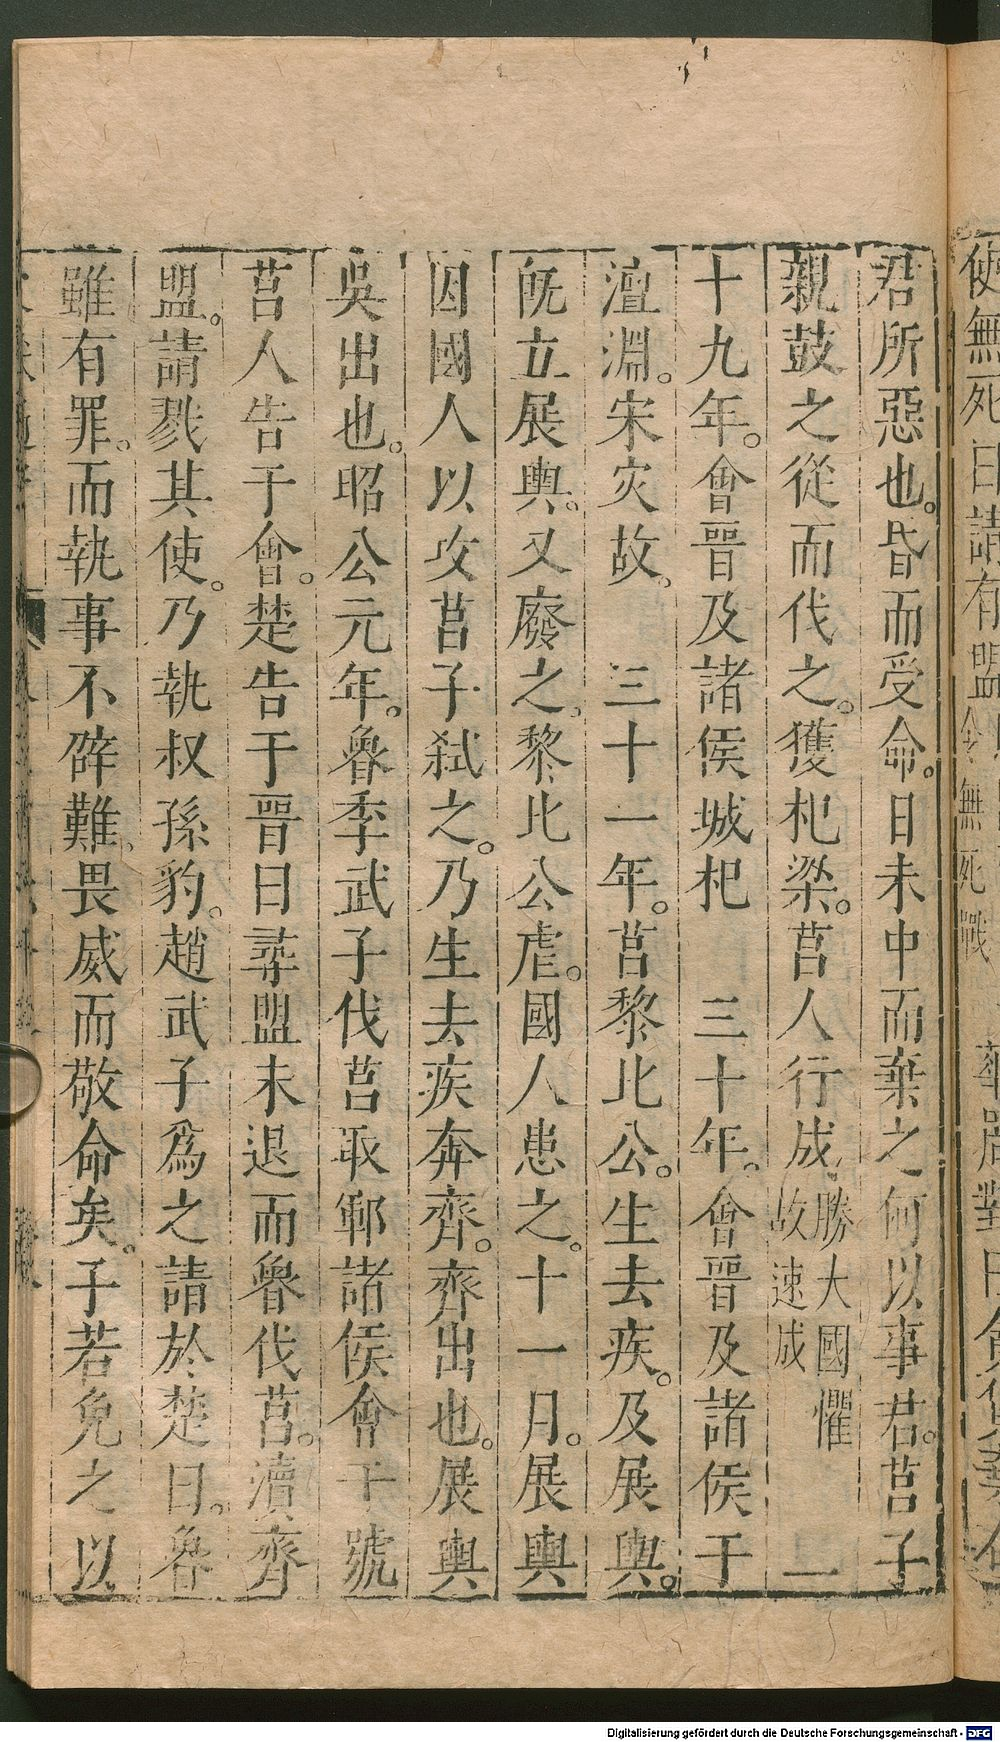 使無死曰請有盟
華周對曰貪貨棄命
君所惡也。昏而受命。日未中而棄之何以事君。莒子
親鼓之從而伐之。獲杞梁。莒人行成勝大國懼故速成 一
十九年。會晉及諸侯城杞 三十年。會晉及諸侯于
澶淵。宋灾故。 三十一年。莒黎比公。生去疾。及展輿。
旣立展輿。又廢之。黎比公虐。國人患之。十一月。展輿
因國人以攻莒子弑之。乃生去疾奔齊。齊出也。展輿
吳出也。昭公元年。魯季武子伐莒取鄆諸侯會于號
莒人告于會。楚告于晉曰㝷盟未退而魯伐莒。瀆齊
盟。請戮其使。乃執叔孫豹。趙武子爲之請於楚曰。魯
雖有罪。而執事不辟難。畏威而敬命矣。子若免之以
Digitalisierung gefördert durch die Deutsche Forschungsgemeinschaft - DFG